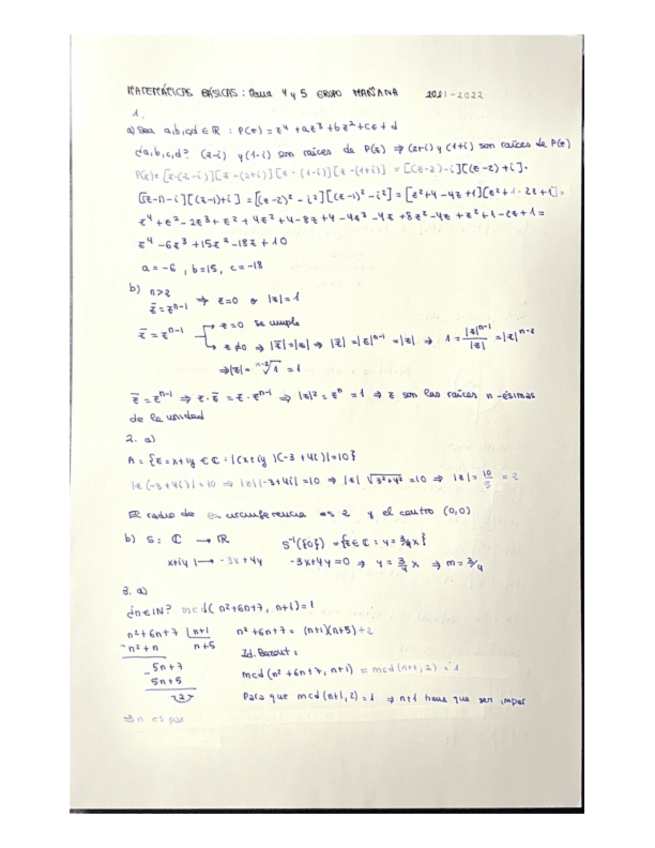 MATEMÁTICAS BÁSICAS: Tema 4 y 5 GRUPO MAÑANA 2021-2022
1.
a) Sea a,b,c,d ∈ ℝ : P(z) = z⁴ + az³ + bz² + cz + d
¿a,b,c,d? (2-i) y (1-i) son raíces de P(z) ⇒ (2+i) y (1+i) son raíces de P(z)
P(z) = [z-(2-i)][z-(2+i)][z-(1-i)][z-(1+i)] = [(z-2)-i][(z-2)+i]·
[(z-1)-i][(z-1)+i] = [(z-2)²-i²][(z-1)²-i²] = [z²+4-4z+1][z²+1-2z+1] =
z⁴+z²-2z³+z²+4z²+4-8z+4-4z³-4z+8z²-4z+z²+1-2z+1 =
z⁴-6z³+15z²-18z+10
a=-6, b=15, c=-18
b) n>2
z̄ = zⁿ⁻¹ ⇒ z=0 o |z|=1
z̄ = zⁿ⁻¹ → z=0 se cumple
→ z≠0 ⇒ |z̄|=|z| ⇒ |z̄|=|z|ⁿ⁻¹=|z| ⇒ 1 = |z|ⁿ⁻¹/|z| = |z|ⁿ⁻²
⇒ |z| = ⁿ⁻²√1 = 1
z̄ = zⁿ⁻¹ ⇒ z·z̄ = z·zⁿ⁻¹ ⇒ |z|² = zⁿ = 1 ⇒ z son las raíces n-ésimas
de la unidad
2. a)
A = {z=x+iy ∈ ℂ : |(x+iy)(-3+4i)|=10}
|z(-3+4i)|=10 ⇒ |z||-3+4i|=10 ⇒ |z| √3²+4² =10 ⇒ |z| = 10/5 = 2
El radio de circunferencia es 2 y el centro (0,0)
b) S: ℂ → ℝ S⁻¹({0}) = {z∈ℂ : y = 3/4x}
x+iy ↦ -3x+4y -3x+4y=0 ⇒ y = 3/4 x ⇒ m = 3/4
3. a)
¿n∈ℕ? mcd(n²+6n+7, n+1)=1
n²+6n+7 |n+1 n²+6n+7 = (n+1)(n+5)+2
-n²+n n+5 Id. Bezout:
5n+7 mcd(n²+6n+7, n+1) = mcd(n+1, 2) = 1
-5n+5
(2) Para que mcd(n+1, 2) = 1 ⇒ n+1 tiene que ser impar
⇒ n es par